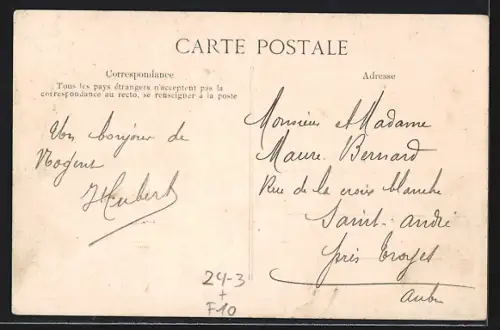 CARTE POSTALE
Correspondance
Tous les pays étrangers n'acceptent pas la
correspondance au recto, se renseigner à la poste
Un bonjour de
Nogent
Hubert
24-3
+
F10
Adresse
Monsieur et Madame
Maure Bernard
Rue de la croix blanche
Saint-andré
près Troyes
Aube